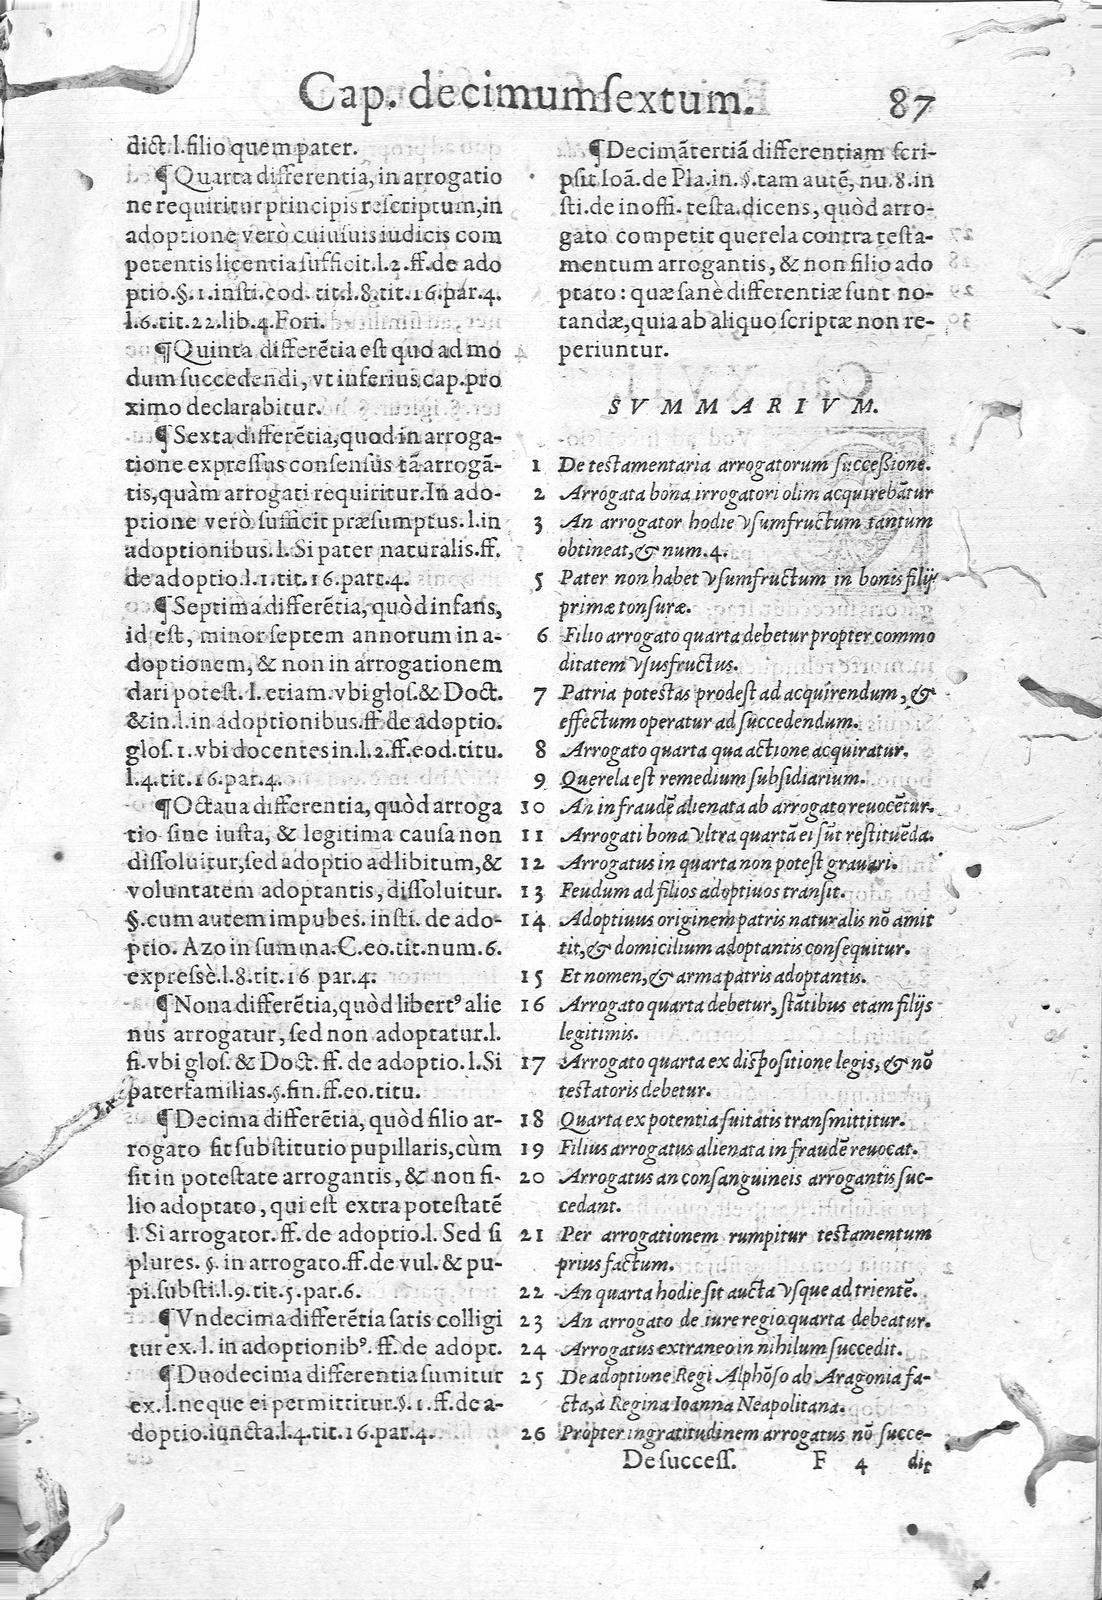 Cap. decimumſextum. 87
dict.l.filio quem pater.
¶Quarta differentia, in arrogatio
ne requiritur principis reſcriptum, in
adoptione verò cuiuſuis iudicis com
petentis licentia ſufficit.l.2.ff.de ado
ptio.§.1.inſti.eod.tit.l.8.tit.16.par.4.
l.6.tit.22.lib.4.Fori.
¶Quinta differẽtia eſt quo ad mo
dum ſuccedendi, vt inferius, cap.pro
ximo declarabitur.
¶Sexta differẽtia, quod in arroga-
tione expreſſus conſenſus tã arrogã-
tis, quàm arrogati requiritur. In ado-
ptione verò ſufficit præſumptus.l.in
adoptionibus.l.Si pater naturalis.ff.
de adoptio.l.1.tit.16.part.4.
¶Septima differẽtia, quòd infans,
id eſt, minor ſeptem annorum in a-
doptionem, & non in arrogationem
dari poteſt.l.etiam.vbi gloſ.& Doct.
& in.l.in adoptionibus.ff.de adoptio.
gloſ.1.vbi docentes in.l.2.ff.eod.titu.
l.4.tit.16.par.4.
¶Octaua differentia, quòd arroga
tio ſine iuſta, & legitima cauſa non
diſſoluitur, ſed adoptio ad libitum, &
voluntatem adoptantis, diſſoluitur.
§.cum autem impubes.inſti.de ado-
ptio.Azo in ſumma.C.eo.tit.num.6.
expreſsè.l.8.tit.16 par.4.
¶Nona differẽtia, quòd libertꝰ alie
nus arrogatur, ſed non adoptatur.l.
fi.vbi gloſ.& Doct.ff.de adoptio.l.Si
paterfamilias.§.fin.ff.eo.titu.
¶Decima differẽtia, quòd filio ar-
rogato fit ſubſtitutio pupillaris, cùm
ſit in poteſtate arrogantis, & non fi-
lio adoptato, qui eſt extra poteſtatẽ
l.Si arrogator.ff.de adoptio.l.Sed ſi
plures.§.in arrogato.ff.de vul.& pu-
pi.ſubſti.l.9.tit.5.par.6.
¶Vndecima differẽtia ſatis colligi
tur ex.l.in adoptionibꝰ.ff.de adopt.
¶Duodecima differentia ſumitur
ex.l.neque ei permittitur.§.1.ff.de a-
doptio.iuncta.l.4.tit.16.par.4.
¶Decimãtertiã differentiam ſcri-
pſit Ioã.de Pla.in.§.tam autẽ, nu.8.in
ſti.de inoffi.teſta.dicens, quòd arro-
gato competit querela contra teſta-
mentum arrogantis, & non filio ado
ptato: quæ ſanè differentiæ ſunt no-
tandæ, quia ab aliquo ſcriptæ non re-
periuntur.
SVMMARIVM.
1 De teſtamentaria arrogatorum ſucceßione.
2 Arrogata bona irrogatori olim acquirebãtur
3 An arrogator hodie vſumfructum tantùm
obtineat, & num.4.
5 Pater non habet vſumfructum in bonis filij
primæ tonſuræ.
6 Filio arrogato quarta debetur propter commo
ditatem vſusfructus.
7 Patria poteſtas prodeſt ad acquirendum, &
effectum operatur ad ſuccedendum.
8 Arrogato quarta qua actione acquiratur.
9 Querela eſt remedium ſubſidiarium.
10 An in fraudẽ alienata ab arrogato reuocẽtur.
11 Arrogati bona vltra quartã ei ſũt reſtituẽda.
12 Arrogatus in quarta non poteſt grauari.
13 Feudum ad filios adoptiuos tranſit.
14 Adoptiuus originem patris naturalis nõ amit
tit, & domicilium adoptantis conſequitur.
15 Et nomen, & arma patris adoptantis.
16 Arrogato quarta debetur, ſtãtibus etam filijs
legitimis.
17 Arrogato quarta ex diſpoſitione legis, & nõ
teſtatoris debetur.
18 Quarta ex potentia ſuitatis tranſmittitur.
19 Filius arrogatus alienata in fraudẽ reuocat.
20 Arrogatus an conſanguineis arrogantis ſuc-
cedant.
21 Per arrogationem rumpitur teſtamentum
prius factum.
22 An quarta hodie ſit aucta vſque ad trientẽ.
23 An arrogato de iure regio quarta debeatur.
24 Arrogatus extraneo in nihilum ſuccedit.
25 De adoptione Regi Alphõſo ab Aragonia fa-
cta, à Regina Ioanna Neapolitana.
26 Propter ingratitudinem arrogatus nõ ſucce-
De ſucceſſ. F 4 dit